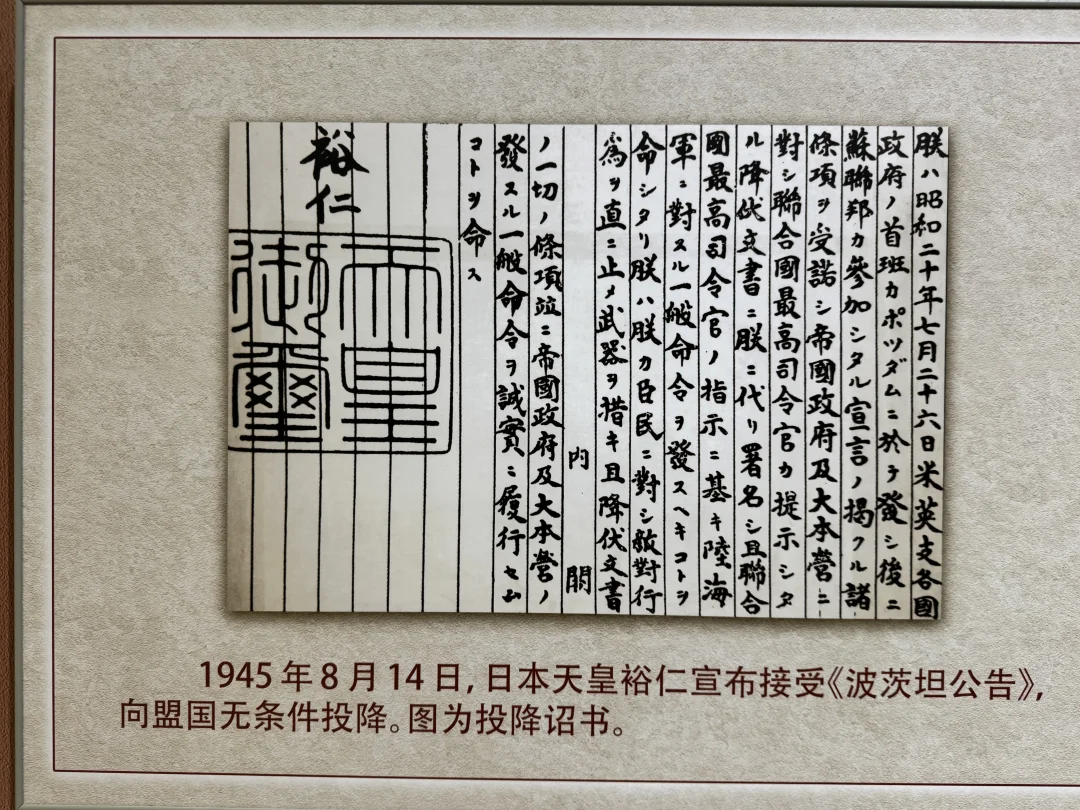 朕ハ昭和二十年七月二十六日米英支各國
政府ノ首班カポツダムニ於テ發シ後ニ
蘇聯邦カ參加シタル宣言ノ掲クル諸
條項ヲ受諾シ帝國政府及大本營ニ
對シ聯合國最高司令官カ提示シタ
ル降伏文書ニ朕ニ代リ署名シ且聯合
國最高司令官ノ指示ニ基キ陸海
軍ニ對スル一般命令ヲ發スヘキコトヲ
命シタリ朕ハ朕カ臣民ニ對シ敵對行
爲ヲ直ニ止メ武器ヲ措キ且降伏文書
内閣
ノ一切ノ條項竝ニ帝國政府及大本營ノ
發スル一般命令ヲ誠實ニ履行セム
コトヲ命ス
裕仁
天皇
御璽
1945 年 8 月 14 日, 日本天皇裕仁宣布接受《波茨坦公告》,
向盟国无条件投降。图为投降诏书。